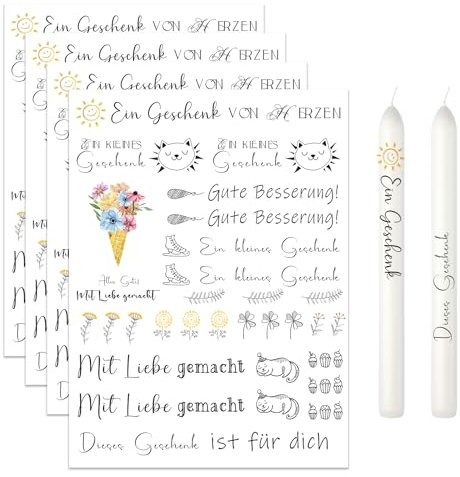 Ein Geschenk VON HERZEN
Ein Geschenk VON HERZEN
Ein Geschenk VON HERZEN
Ein Geschenk VON HERZEN
EIN KLEINES Geschenk
EIN KLEINES Geschenk
Gute Besserung!
Gute Besserung!
Ein kleines Geschenk
Ein kleines Geschenk
Alles Gute!
Mit Liebe gemacht
Mit Liebe gemacht
Mit Liebe gemacht
Dieses Geschenk ist für dich
Ein Geschenk
Dieses Geschenk